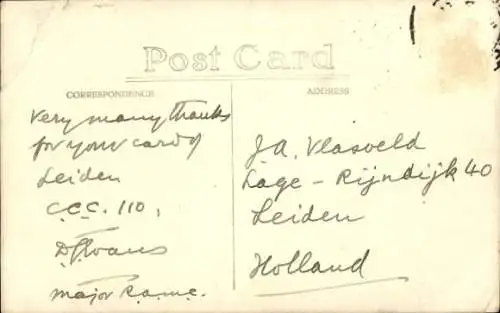 Post Card
CORRESPONDENCE
Very many thanks
for your card of
Leiden
C.C.C. 110,
Major R.A.M.C.
ADDRESS
J.A. Vlasveld
Lage - Rijndijk 40
Leiden
Holland